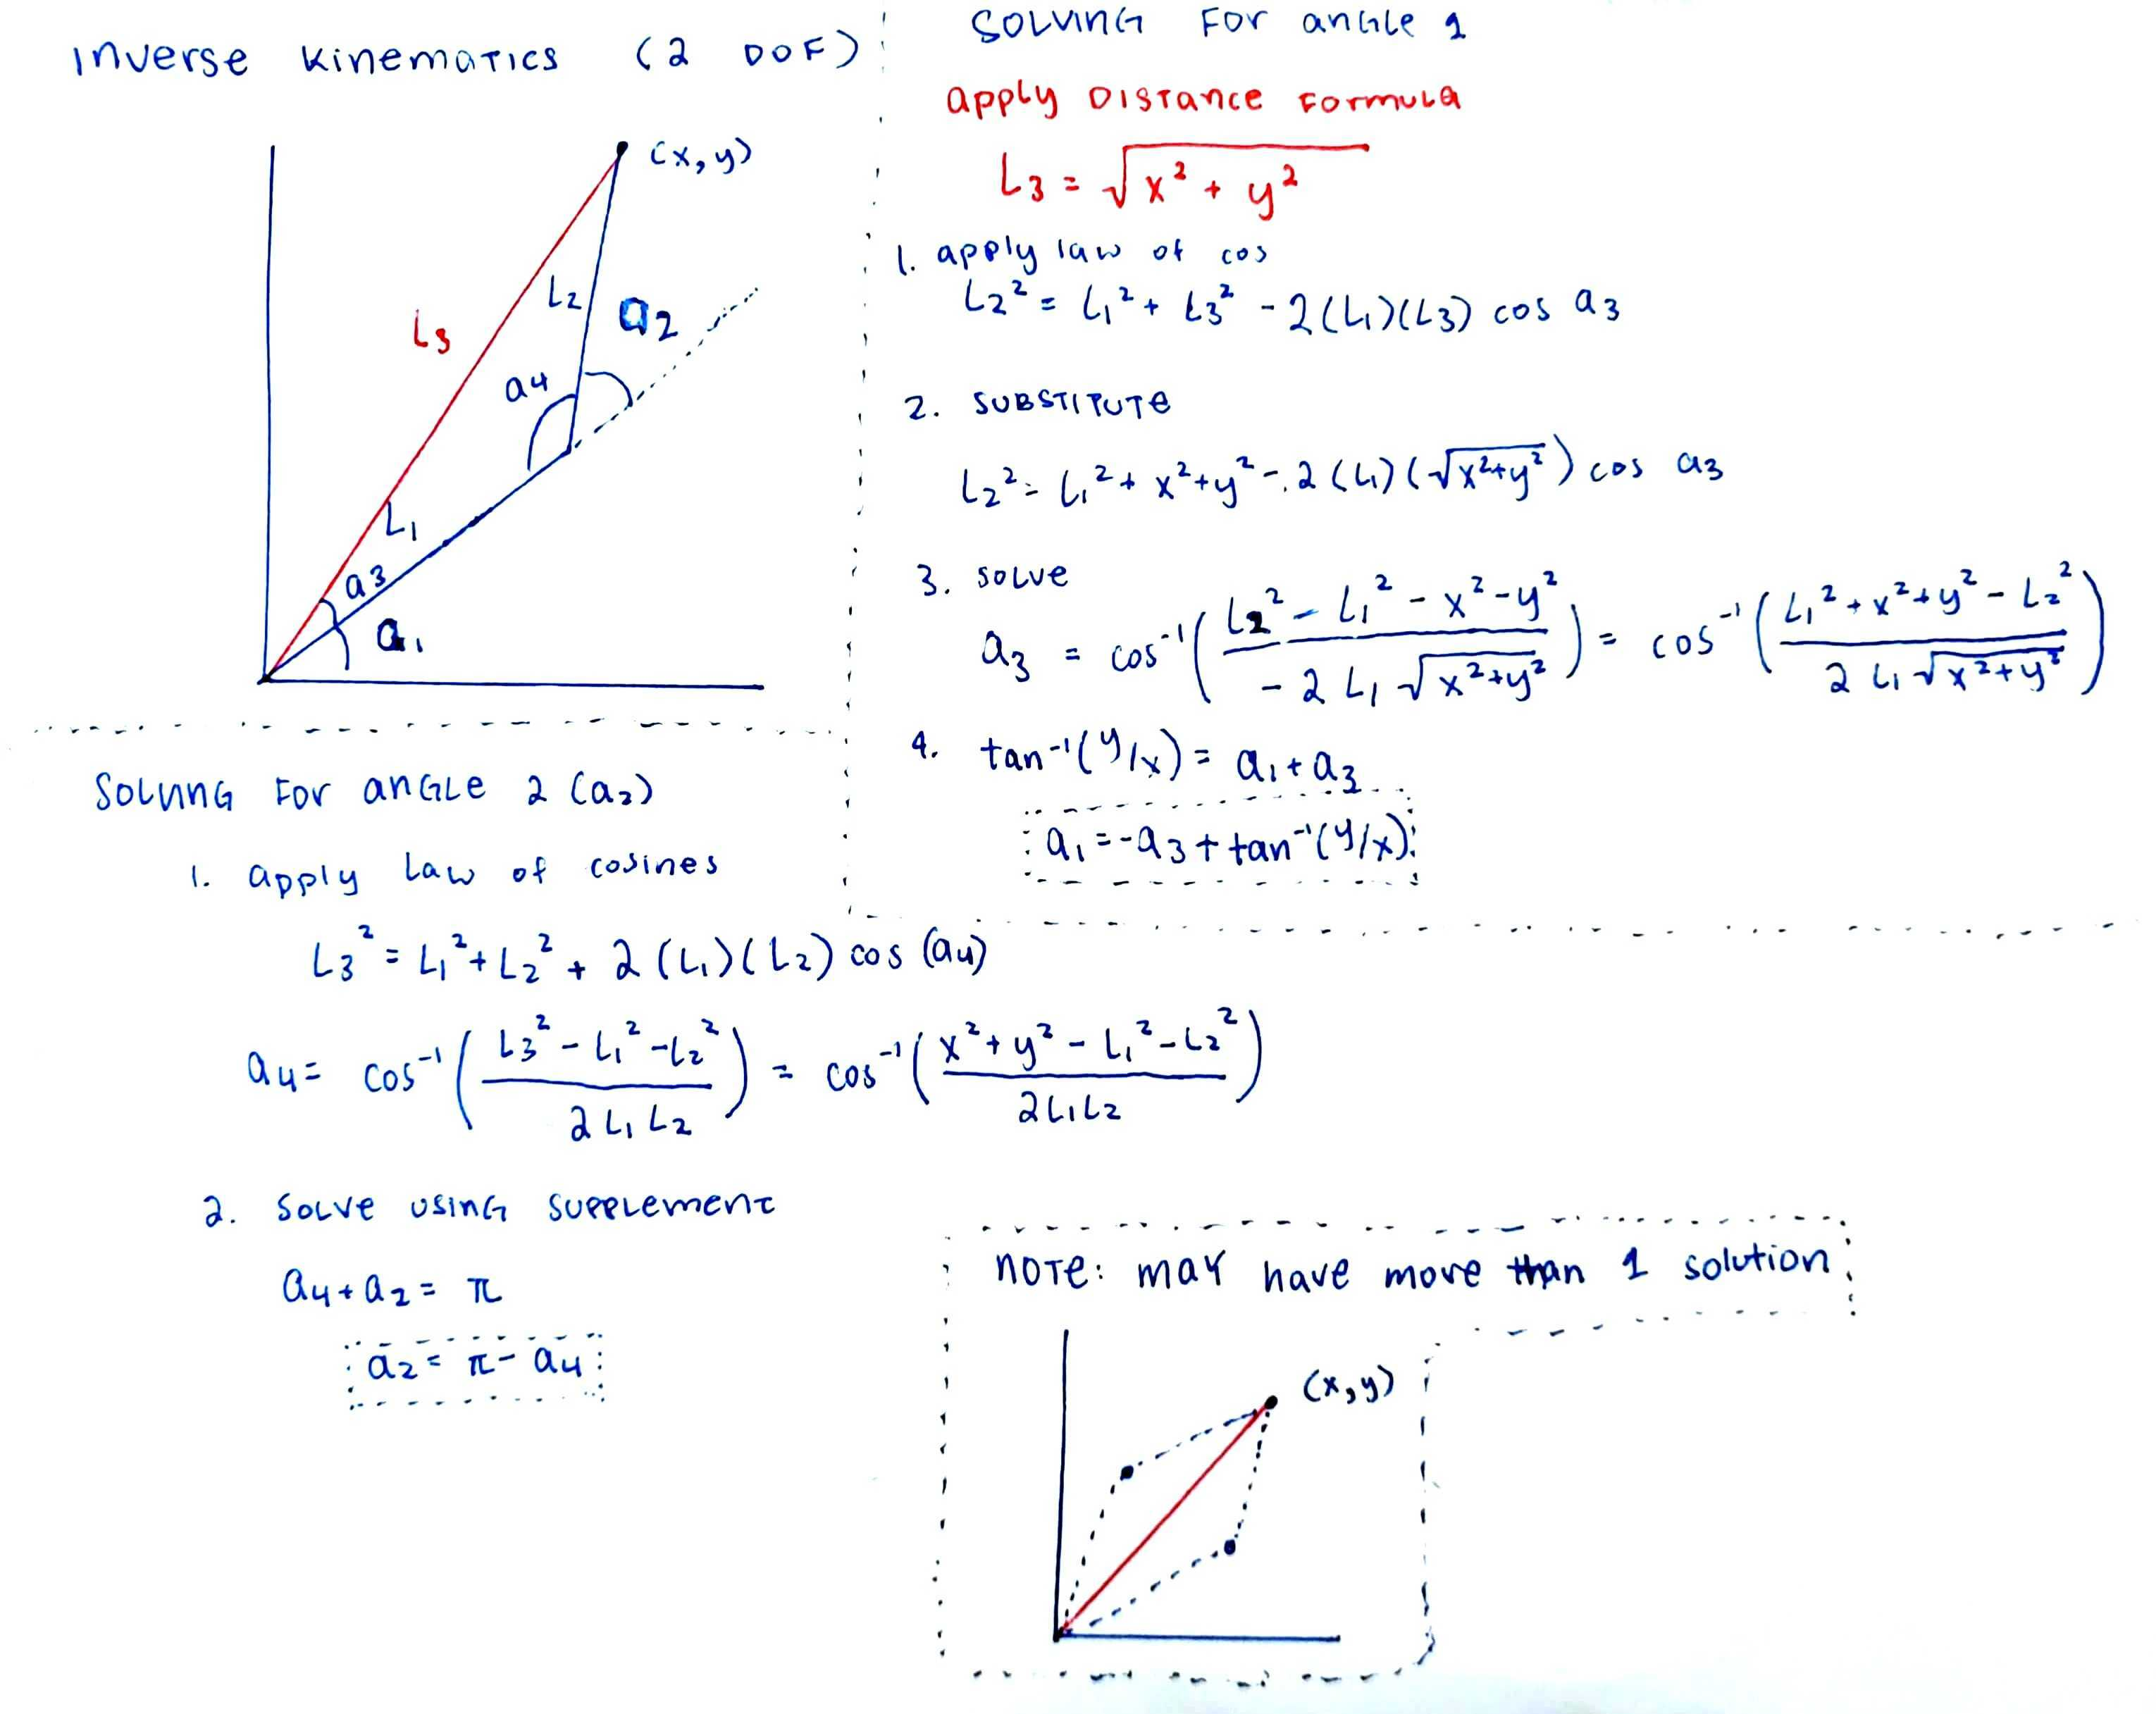 Inverse Kinematics (2 DOF)
(x,y)
L3
L2
a2
a4
L1
a3
a1
SOLVING FOR angle 1
apply Distance Formula
L3 = √(x² + y²)
1. apply law of cos
L2² = L1² + L3² - 2(L1)(L3) cos a3
2. SUBSTITUTE
L2² = L1² + x² + y² - 2(L1)(√(x²+y²)) cos a3
3. SOLVE
a3 = cos⁻¹((L2² - L1² - x² - y²)/(-2 L1 √(x²+y²))) = cos⁻¹((L1² + x² + y² - L2²)/(2 L1 √(x²+y²)))
4. tan⁻¹(y/x) = a1 + a3
a1 = -a3 + tan⁻¹(y/x)
SOLVING FOR angle 2 (a2)
1. apply Law of cosines
L3² = L1² + L2² + 2(L1)(L2) cos(a4)
a4 = cos⁻¹((L3² - L1² - L2²)/(2 L1 L2)) = cos⁻¹((x² + y² - L1² - L2²)/(2 L1 L2))
2. SOLVE USING SUPPLEMENT
a4 + a2 = π
a2 = π - a4
NOTE: may have more than 1 solution
(x,y)